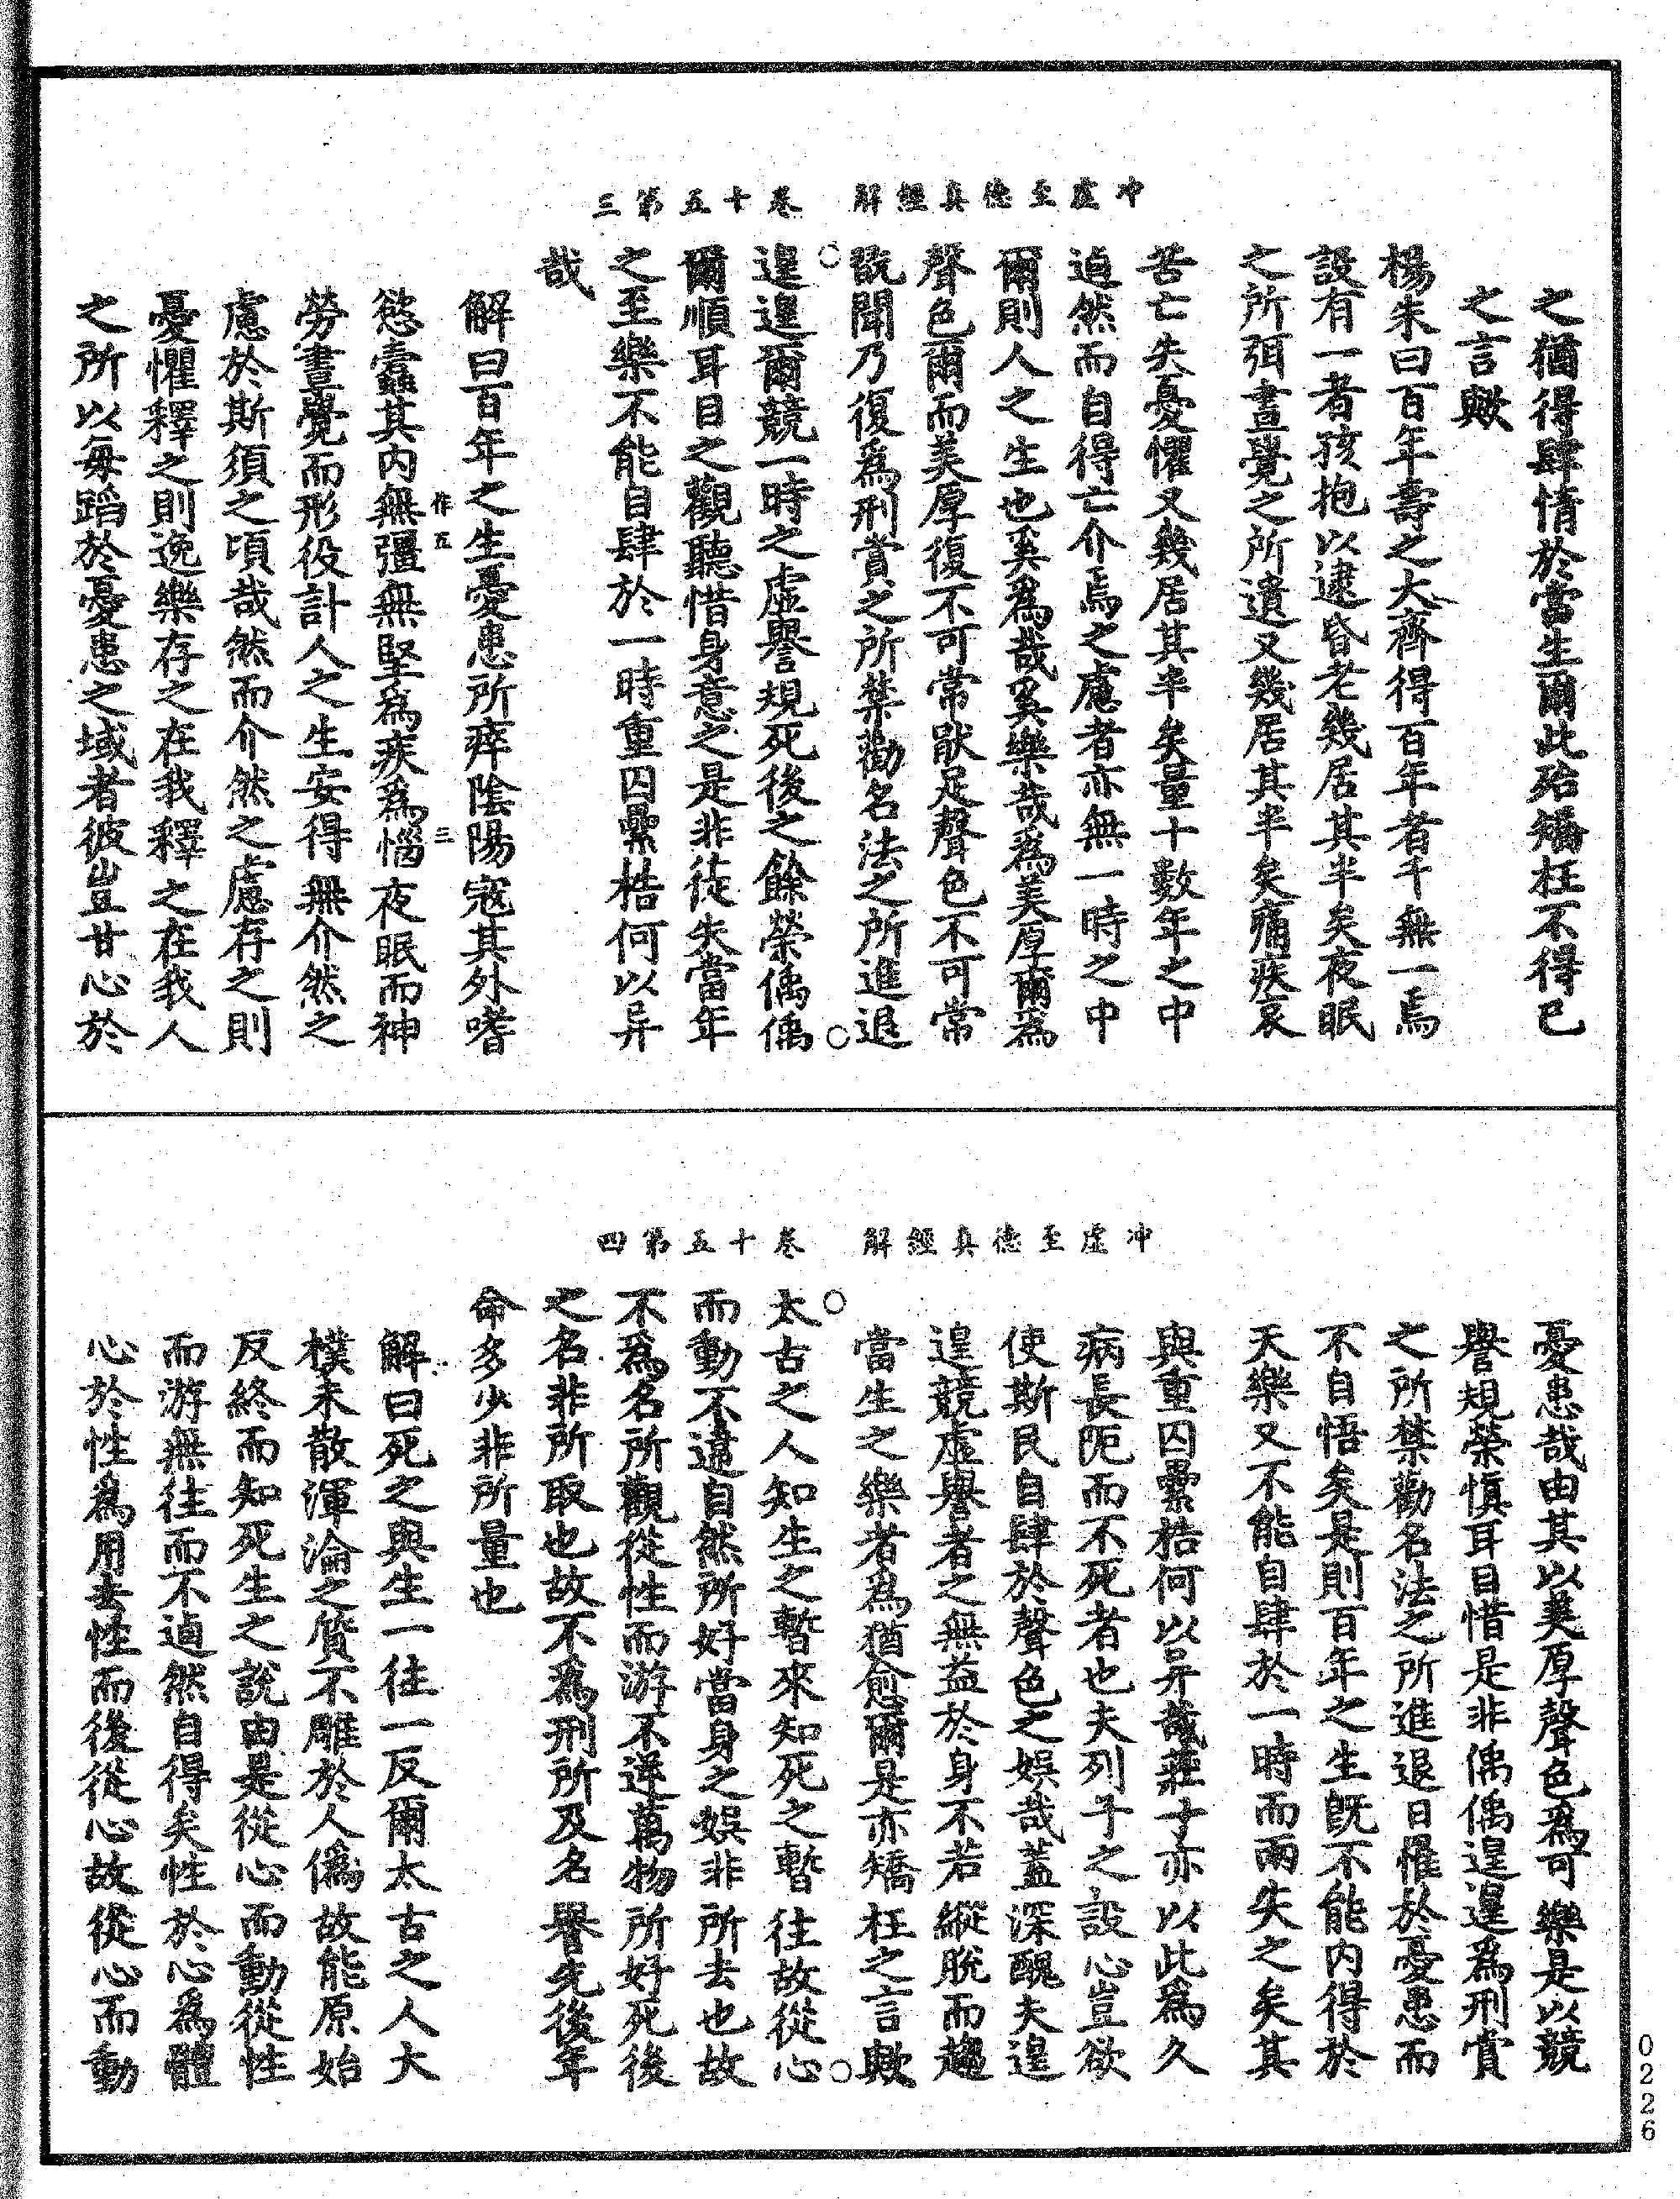 冲虛至德真經解　卷十五第三
之猶得肆情於當生爾此殆矯枉不得已
之言歟
楊朱曰百年壽之大齊得百年者千無一焉
設有一者孩抱以逮昏老幾居其半矣夜眠
之所弭晝覺之所遺又幾居其半矣痛疾哀
苦亡失憂懼又幾居其半矣量十數年之中
逌然而自得亡介焉之慮者亦無一時之中
爾則人之生也奚為哉奚樂哉為美厚爾為
聲色爾而美厚復不可常猒足聲色不可常
翫聞乃復為刑賞之所禁勸名法之所進退
遑遑爾競一時之虛譽規死後之餘榮偊偊
爾順耳目之觀聽惜身意之是非徒失當年
之至樂不能自肆於一時重囚纍梏何以异
哉
解曰百年之生憂患所瘁陰陽寇其外嗜
慾蠹其內無彊無堅為疾為惱夜眠而神
作五　三
勞晝覺而形役計人之生安得無介然之
慮於斯須之頃哉然而介然之慮存之則
憂懼釋之則逸樂存之在我釋之在我人
之所以每蹈於憂患之域者彼豈甘心於
冲虛至德真經解　卷十五第四
憂患哉由其以美厚聲色為可樂是以競
譽規榮慎耳目惜是非偊偊遑遑為刑賞
之所禁勸名法之所進退日惟於憂患而
不自悟矣是則百年之生既不能內得於
天樂又不能自肆於一時而兩失之矣其
與重囚纍梏何以异哉莊子亦以此為久
病長阨而不死者也夫列子之設心豈欲
使斯民自肆於聲色之娛哉蓋深醜夫遑
遑競虛譽者之無益於身不若縱脫而趨
當生之樂者為猶愈爾是亦矯枉之言歟
太古之人知生之暫來知死之暫往故從心
而動不違自然所好當身之娛非所去也故
不為名所觀從性而游不逆萬物所好死後
之名非所取也故不為刑所及名譽先後年
命多少非所量也
解曰死之與生一往一反爾太古之人大
樸未散渾淪之質不雕於人偽故能原始
反終而知死生之說由是從心而動從性
而游無往而不逌然自得矣性於心為體
心於性為用去性而後從心故從心而動
0226